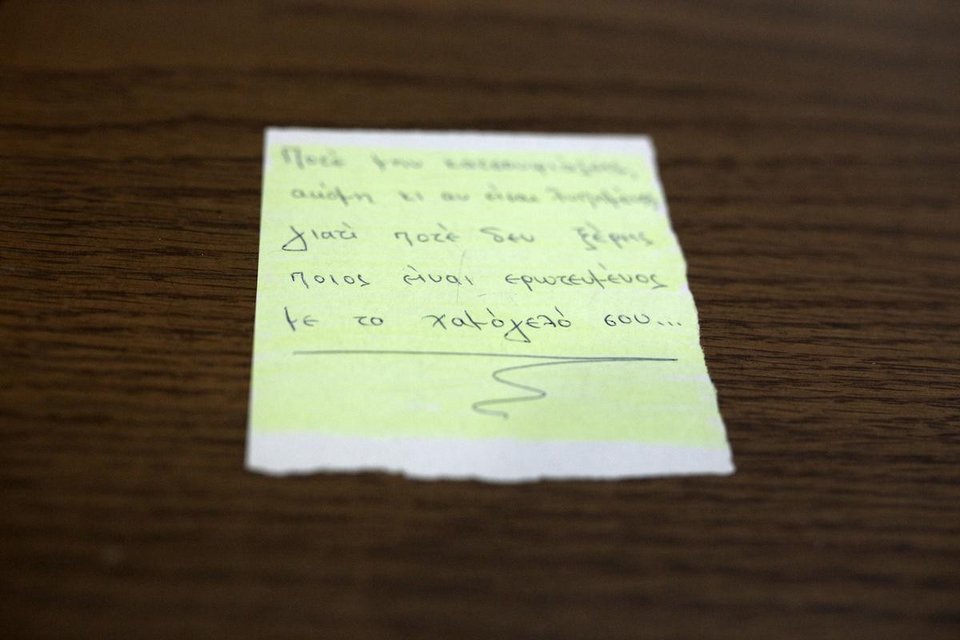 Ποτέ μην κατσουφιάζεις,
ακόμη κι αν είσαι
γιατί ποτέ δεν ξέρεις
ποιος είναι ερωτευμένος
με το χαμόγελό σου...